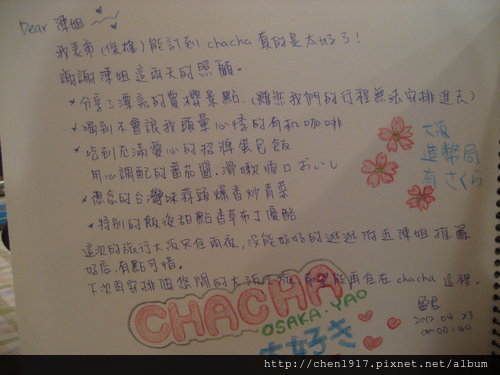 Dear 陳姐
我表弟(俊雄)能訂到chacha真的是太好了!
謝謝陳姐這兩天的照顧。
*分享3漂亮的賞櫻景點.(雖然我們的行程無法安排進去)
*喝到不會讓我頭暈心悸的有机咖啡
*吃到充滿愛心的招牌蛋包飯
用心調配的蕃茄醬,滑嫩順口おいし
*想念的台灣味蒜頭爆香炒青菜
*特別的飯後甜點香草布丁優酪
大阪
造幣局
有さくら
這次的旅行大阪只住兩夜,沒能好好的逛逛附近陳姐推薦
好店.有點可惜。
下次再安排個悠閒的大阪之旅 希望能再住在chacha這裡.
CHACHA
OSAKA.YAO
大好き
2012.04.23
am00:40
http://chen1917.pixnet.net/album